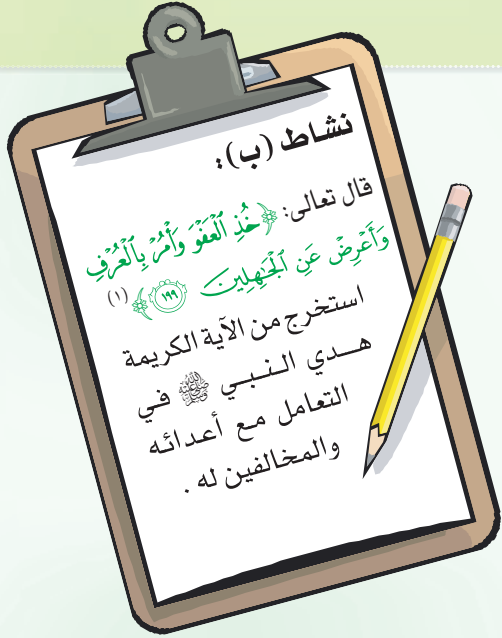 نشاط (ب):
قال تعالى: ﴿خُذِ ٱلْعَفْوَ وَأْمُرْ بِٱلْعُرْفِ
وَأَعْرِضْ عَنِ ٱلْجَٰهِلِينَ ١٩٩﴾ (١)
استخرج من الآية الكريمة
هـدي الـنـبـي ﷺ فـي
التعامل مـع أعـدائـه
والمخالفين له .